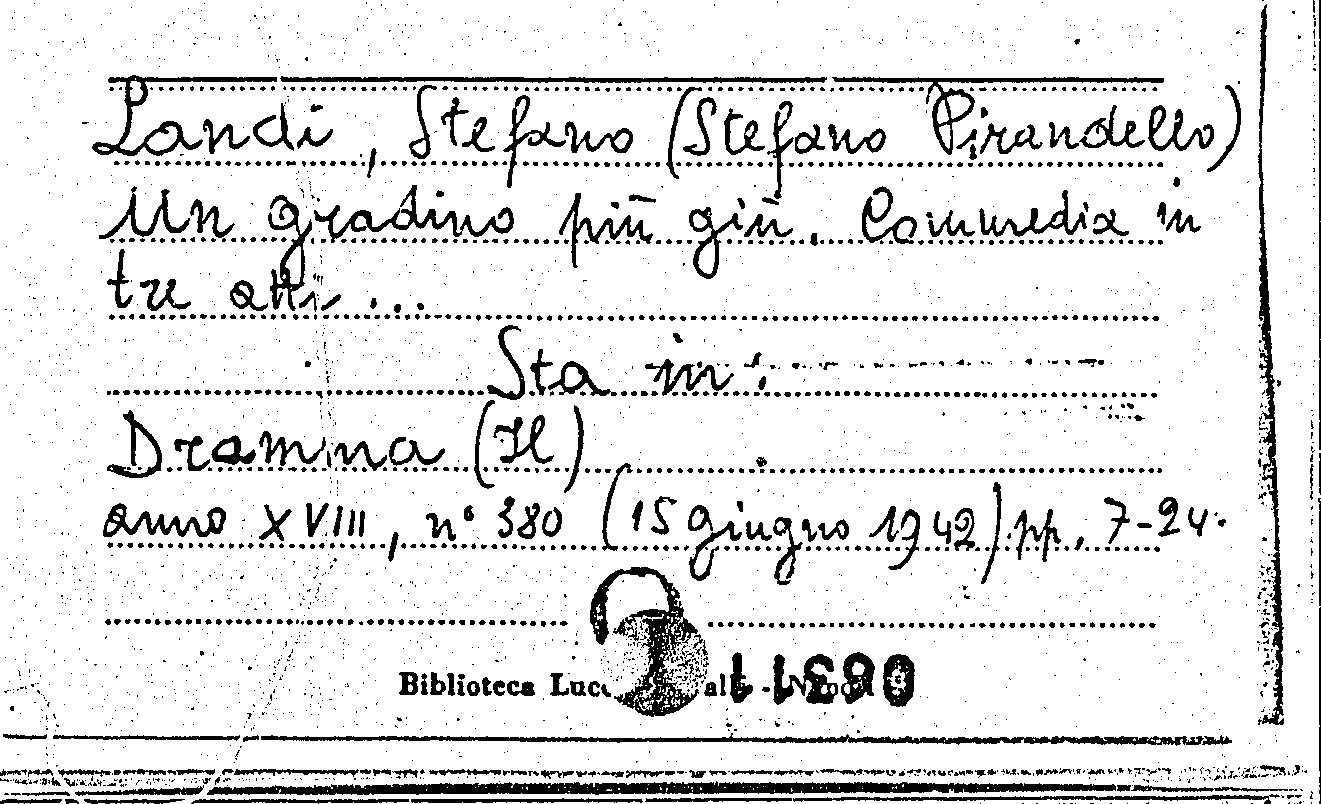 Landi, Stefano (Stefano Pirandello)
Un gradino più giù. Commedia in
tre atti ...
Sta in:
Dramma (Il)
anno XVIII, n° 380 (15 giugno 1942) pp. 7-24.
Biblioteca
06311